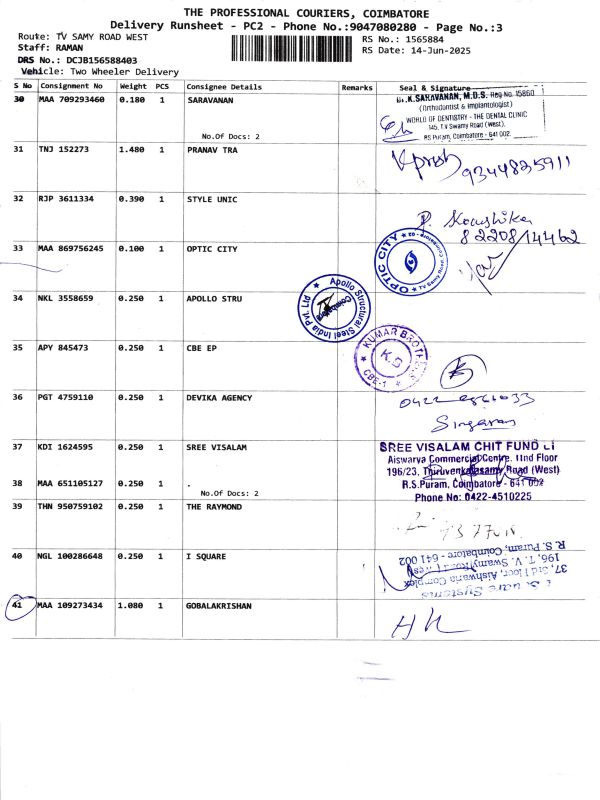 THE PROFESSIONAL COURIERS, COIMBATORE
Delivery Runsheet - PC2 - Phone No.:9047080280 - Page No.:3
Route: TV SAMY ROAD WEST
RS No.: 1565884
Staff: RAMAN
RS Date: 14-Jun-2025
DRS No.: DCJB156588403
Vehicle: Two Wheeler Delivery
S No Consignment No Weight PCS Consignee Details Remarks Seal & Signature
30 MAA 709293460 0.180 1 SARAVANAN
No.Of Docs: 2
Dr.K.SARAVANAN, M.D.S. Reg No. 15860
(Orthodontist & Implantologist)
WORLD OF DENTISTRY - THE DENTAL CLINIC
145, T.V Swamy Road (West),
RS Puram, Coimbatore - 641 002.
31 TNJ 152273 1.480 1 PRANAV TRA
9344835911
32 RJP 3611334 0.390 1 STYLE UNIC
P. Koushika
82208/14462
33 MAA 869756245 0.100 1 OPTIC CITY
OPTIC CITY
TV Samy Road
Coimbatore - 02
34 NKL 3558659 0.250 1 APOLLO STRU
Apollo Structural Steel India Pvt. Ltd
Coimbatore
35 APY 845473 0.250 1 CBE EP
KUMAR BROTHERS
K.B
CBE-1
36 PGT 4759110 0.250 1 DEVIKA AGENCY
0422
37 KDI 1624595 0.250 1 SREE VISALAM
SREE VISALAM CHIT FUND
Aiswarya Commercial Centre, IInd Floor
196/23, Thiruvenkatasamy Road (West)
R.S.Puram, Coimbatore - 641 002
Phone No: 0422-4510225
38 MAA 651105127 0.250 1 .
No.Of Docs: 2
39 THN 950759102 0.250 1 THE RAYMOND
40 NGL 100286648 0.250 1 I SQUARE
Systems
37, 3rd Floor, Aishwaria Complex
196, T. V. Swamy Road (West)
R. S. Puram, Coimbatore - 641 002
41 MAA 109273434 1.080 1 GOBALAKRISHAN